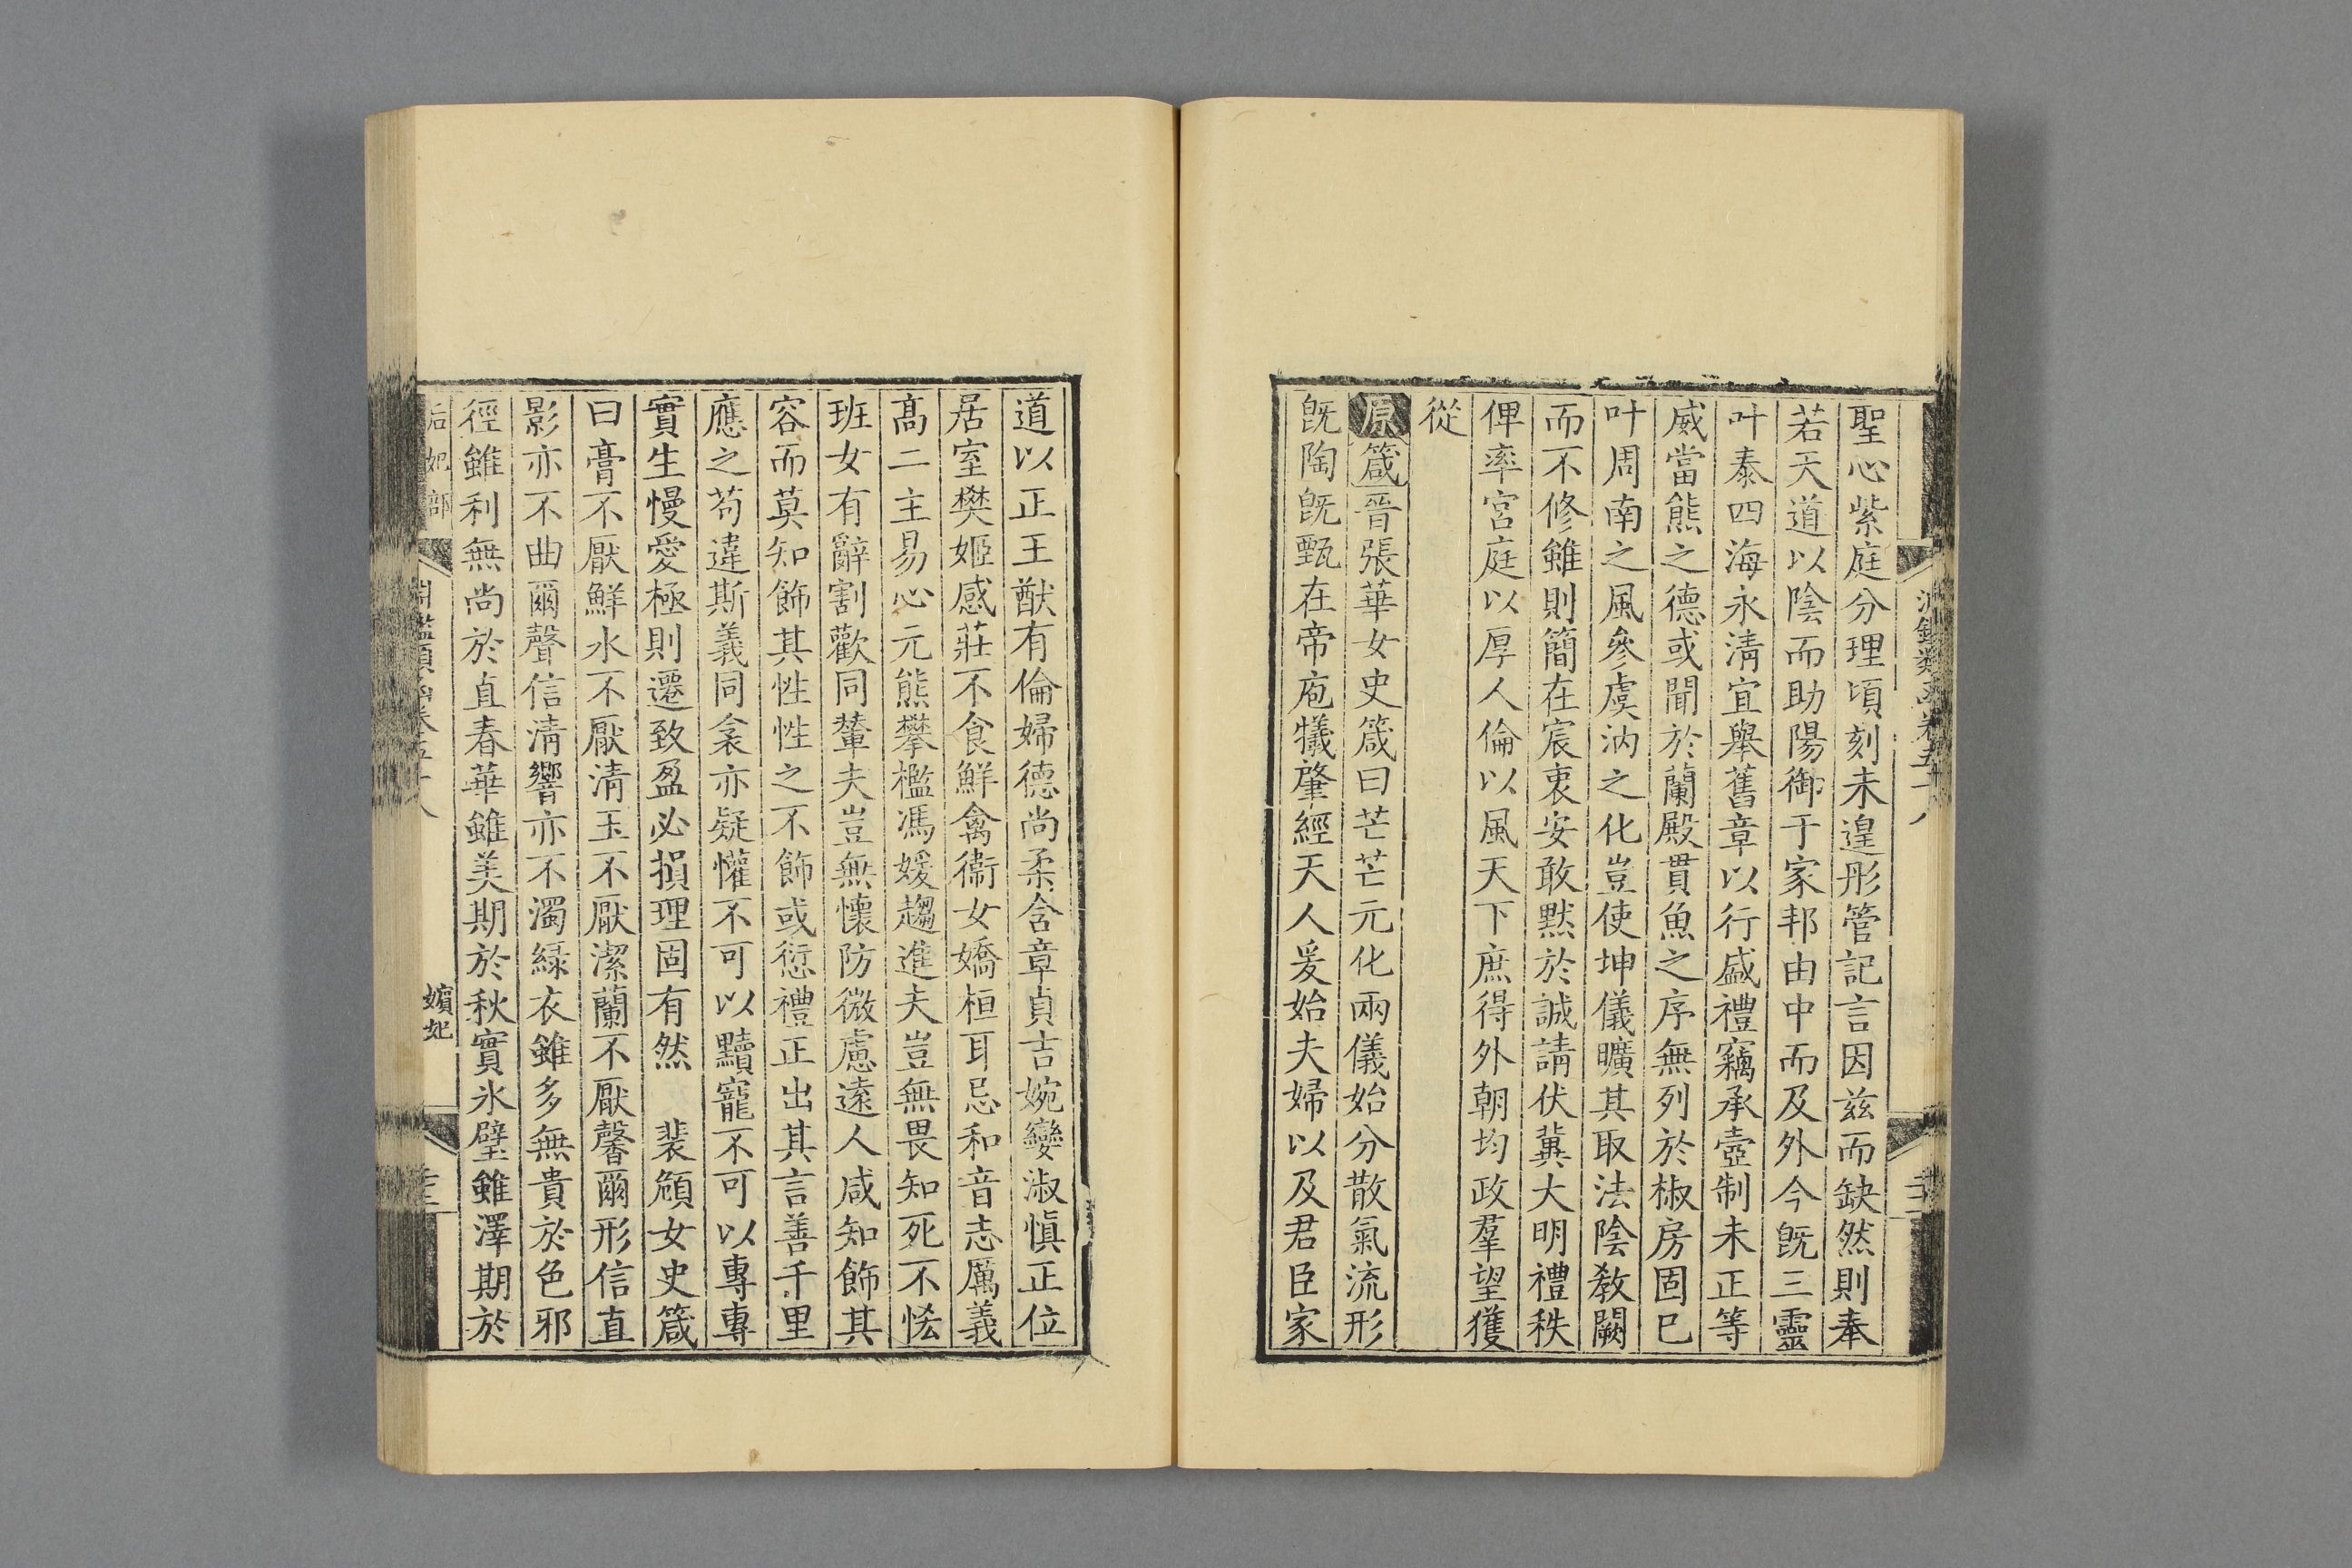 聖心紫庭分理頃刻未遑彤管記言因兹而缺然則奉
若天道以陰而助陽御于家邦由中而及外今旣三靈
叶泰四海永淸宜舉舊章以行盛禮竊承壼制未正等
威當熊之德或聞於蘭殿貫魚之序無列於椒房固已
叶周南之風參虞汭之化豈使坤儀曠其取法陰敎闕
而不修雖則簡在宸衷安敢默於誠請伏冀大明禮秩
俾率宮庭以厚人倫以風天下庶得外朝均政羣望獲
從
原箴晉張華女史箴曰芒芒元化兩儀始分散氣流形
旣陶旣甄在帝庖犧肇經天人爰始夫婦以及君臣家
道以正王猷有倫婦德尚柔含章貞吉婉孌淑愼正位
居室樊姬感莊不食鮮禽衞女嬌桓耳忌和音志厲義
高二主易心元熊攀檻馮媛趨進夫豈無畏知死不恡
班女有辭割歡同輦夫豈無懷防微慮遠人咸知飾其
容而莫知飾其性性之不飾或愆禮正出其言善千里
應之苟違斯義同衾亦疑懽不可以黷寵不可以專專
實生慢愛極則遷致盈必損理固有然　裴頠女史箴
曰膏不厭鮮水不厭淸玉不厭潔蘭不厭馨爾形信直
影亦不曲爾聲信淸響亦不濁綠衣雖多無貴於色邪
徑雖利無尚於直春華雖美期於秋實氷璧雖澤期於
后妃部
嬪妃